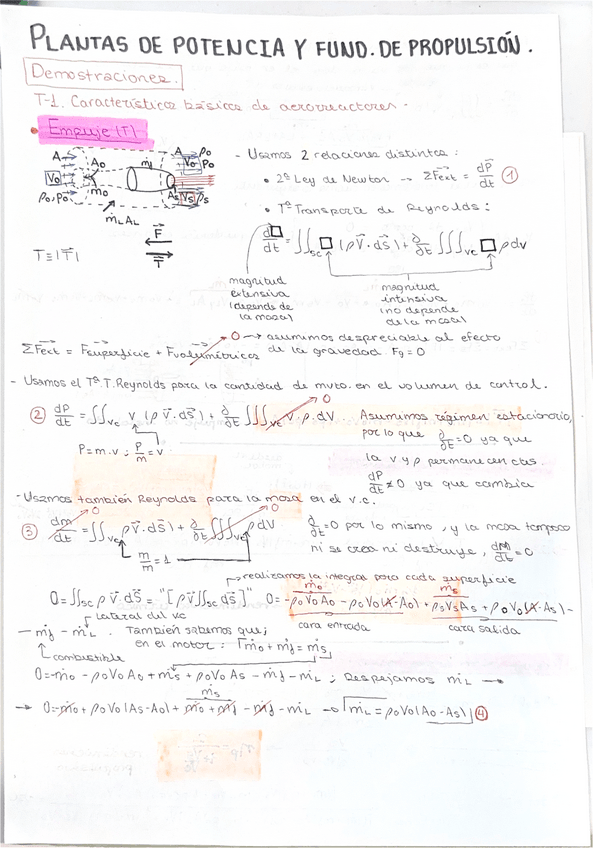 PLANTAS DE POTENCIA Y FUND. DE PROPULSIÓN.
Demostraciones.
T-1. Características básicas de aerorreactores.
• Empuje (T)
A Ao ṁf A po
Vo Vo Po
ρo, po ṁo As Vs ρs
ṁL AL
F
T
T≡|T|
- Usamos 2 relaciones distintas:
• 2ª Ley de Newton → ΣFext = dP/dt ①
• Tª Transporte de Reynolds:
d□/dt = ∬sc □ (ρV·ds) + ∂/∂t ∭vc □ ρdv
magnitud extensiva (depende de la masa)
magnitud intensiva (no depende de la masa)
ΣFext = Fsuperficie + Fvolumétricas → 0 → asumimos despreciable al efecto
de la gravedad. Fg = 0
- Usamos el Tª T. Reynolds para la cantidad de mvto. en el volumen de control.
② dP/dt = ∬vc v (ρ v·ds) + ∂/∂t ∭vc v·ρ·dV. 0 Asumimos régimen estacionario,
por lo que ∂/∂t = 0 ya que
P = m·v ; P/m = v
la v y ρ permanecen ctes.
dP/dt ≠ 0 ya que cambia
- Usamos también Reynolds para la masa en el v.c.
③ dm/dt 0 = ∬vc ρV·ds + ∂/∂t ∭vc ρdV 0 ∂/∂t = 0 por lo mismo, y la masa tampoco
m/m = 1
ni se crea ni destruye, dM/dt = 0
realizamos la integral para cada superficie
0 = ∬sc ρ V·ds = "[ρV∬sc ds]" 0 = -ρoVoAo - ρoVo(A-Ao) + ρsVsAs + ρoVo(A-As) -
ṁo ṁs
cara entrada cara salida
Lateral del vc
- ṁf - ṁL. También sabemos que;
en el motor: ṁo + ṁf = ṁs
combustible
0 = -ṁo - ρoVoAo + ṁs + ρoVoAs - ṁf - ṁL ; Despejamos ṁL →
ṁs
→ 0 = -ṁo + ρoVo(As-Ao) + ṁo + ṁf - ṁf - ṁL → ṁL = ρoVo(Ao-As) ④